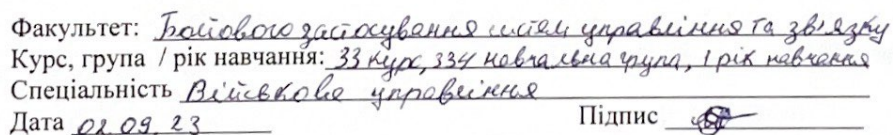 Факультет: Бойового застосування систем управління та зв'язку
Курс, група / рік навчання: 33 курс, 334 навчальна група, 1 рік навчання
Спеціальність Військове управління
Дата 02.09.23 Підпис